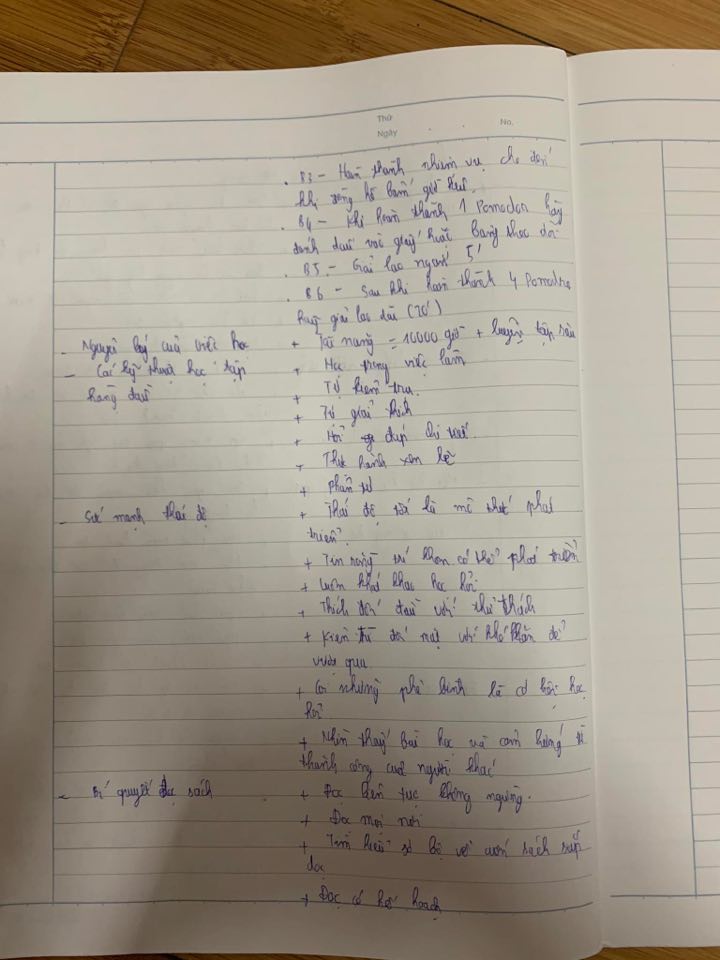 Thứ
Ngày . . No.
. B3 - Hoàn thành nhiệm vụ cho đến
khi đồng hồ bấm giờ
. B4 - Khi hoàn thành 1 Pomodor hãy
đánh dấu vào giấy hoặc bảng theo dõi
. B5 - Giải lao ngắn 5'
. B6 - Sau khi hoàn thành 4 Pomodro
hãy giải lao dài (20')
- Nguyên lý của việc học + Tài năng = 10000 giờ + luyện tập sâu
- Các kỹ thuật học tập + Học trong việc làm
hàng đầu + Tự kiểm tra.
+ Tự giải thích
+ Hỏi chi tiết.
+ Thực hành xen kẽ
+ Phản tư
- Sức mạnh thái độ + Thái độ tốt là mô thức phát
triển.
+ Tin rằng trí khôn có thể phát triển
+ Luôn khát khao học hỏi.
+ Thích đối đầu với thử thách
+ Kiên trì đối mặt với khó khăn để
vượt qua
+ Coi những phê bình là cơ hội học
hỏi
+ Nhìn thấy bài học và cảm hứng từ
thành công của người khác
- Bí quyết đọc sách + Đọc liên tục không ngừng.
+ Đọc mọi nơi
+ Tìm hiểu sơ bộ về cuốn sách sắp
đọc
+ Đọc có kế hoạch